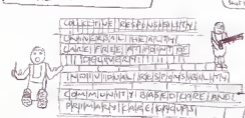 COLLECTIVE RESPONSIBILITY
UNIVERSAL HEALTH
CARE FREE AT POINT OF
DELIVERY
INDIVIDUAL RESPONSIBILITY
COMMUNITY BASED CARE AND
PRIMARY CARE GROUPS